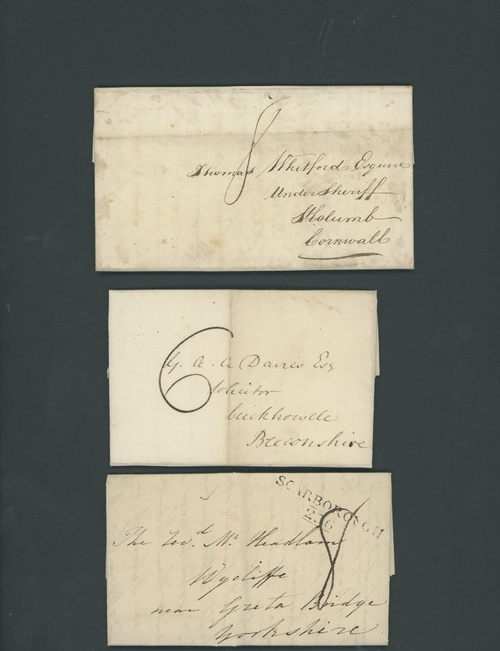 8
Thomas Whitford Esquire
Under Sheriff
St Columb
Cornwall
6
G. A. A Davies Esq
Solicitor
Crickhowell
Breconshire
SCARBOROUGH
236
8
The Revd. Mr Headlam
Wycliffe
near Greta Bridge
Yorkshire